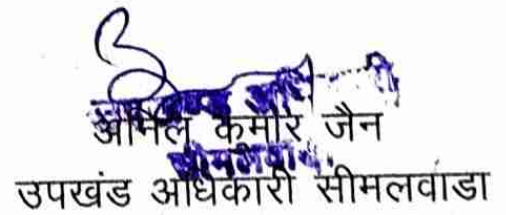 अनिल कुमार जैन
उपखंड अधिकारी सीमलवाडा